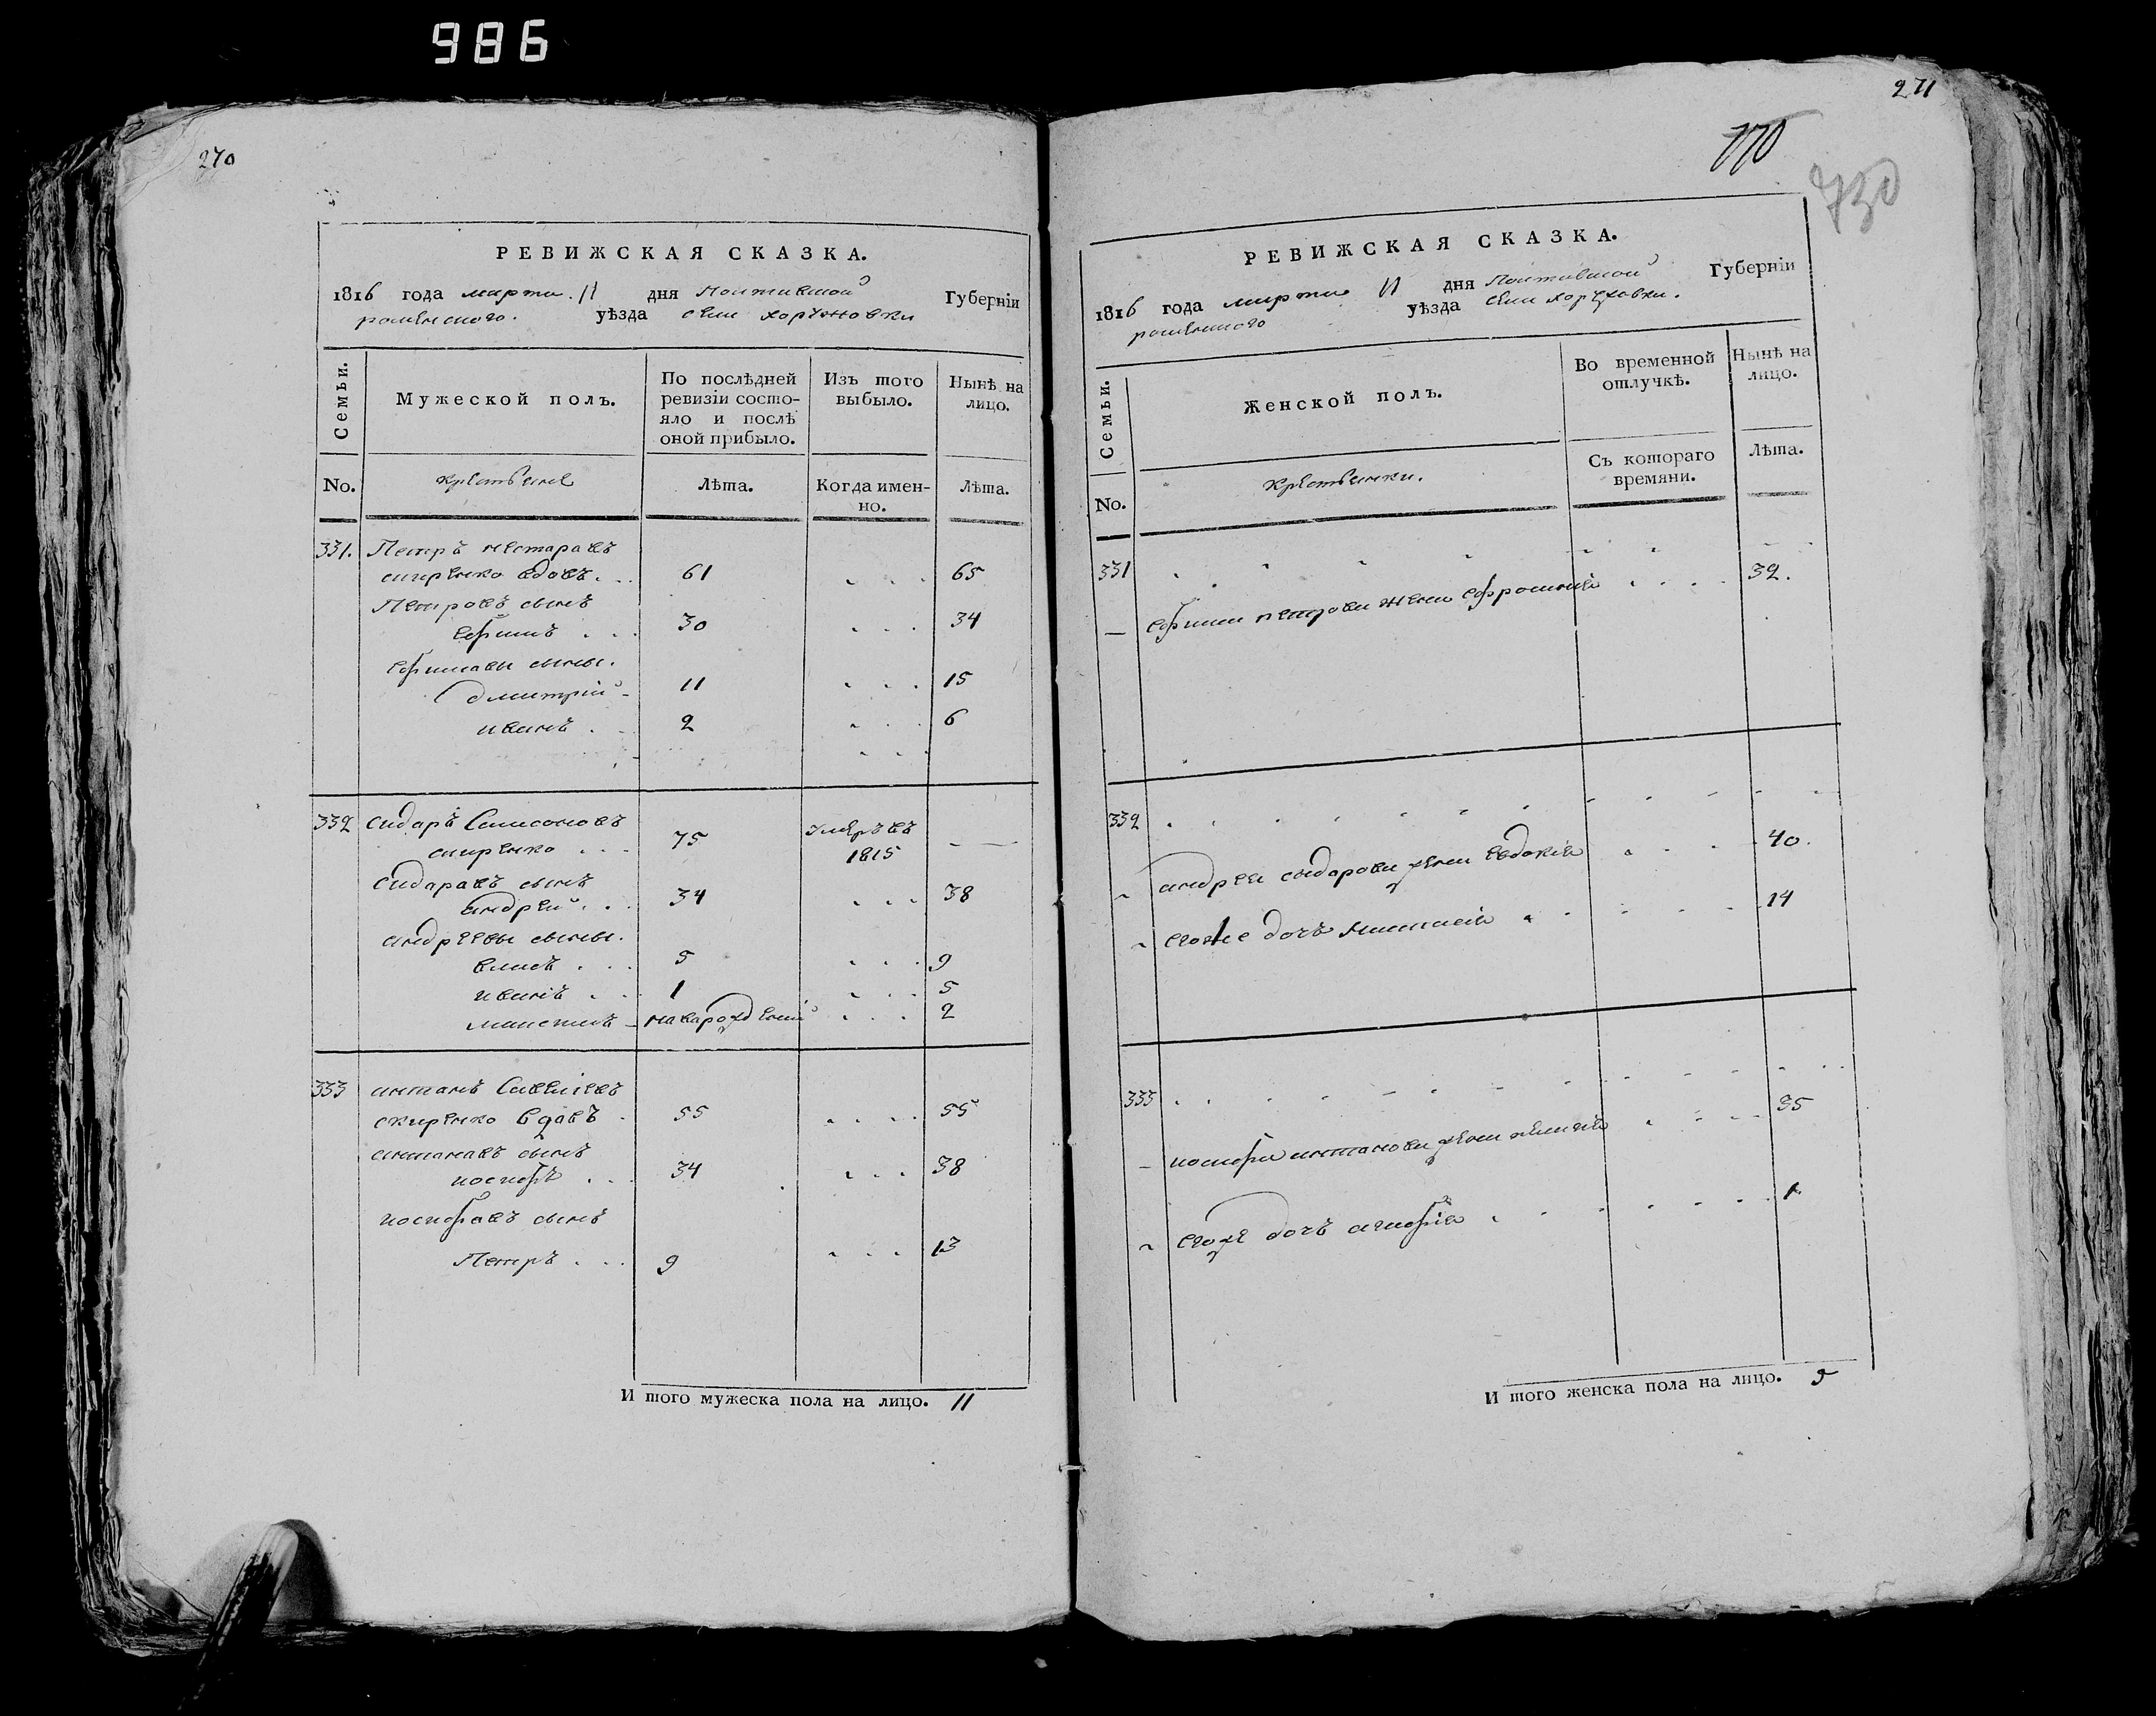 986
270
РЕВИЖСКАЯ СКАЗКА.
1816 года марта 11 дня Полтавской Губерніи
роменского. уѣзда села хоружовки
Семьи.
Мужеской полъ.
По послѣдней ревизіи состо-
яло и послѣ
оной прибыло.
Изъ того
выбыло.
Нынѣ на
лицо.
No.
крестьяне
Лѣта.
Когда имен-
но.
Лѣта.
331. Петръ нестаравъ
скиренко вдовъ. 61 65
Петровъ сынъ
ефимъ 30 34
ефимавы сыны.
дмитрій 11 15
иванъ 2 6
332 сидаръ Самсоновъ
скиренко 75 умеръ въ 1815 —
сидаравъ сынъ
андрей 34 38
андреевы сыны.
власъ 5 9
иванъ 1 5
новарожденній 2
333 антанъ Савеліевъ
скиренко вдавъ 55 55
антанавъ сынъ
иосифъ 34 38
иосифавъ сынъ
Петръ 9 13
И того мужеска пола на лицо. 11
271
770
730
РЕВИЖСКАЯ СКАЗКА.
1816 года марта 11 дня Полтавской Губерніи
роменского уѣзда села хоружовки.
Семьи.
Женской полъ.
Во временной
отлучкѣ.
Нынѣ на
лицо.
No.
крестьянки.
Съ котораго
времяни.
Лѣта.
331
— ефима петрова жена ефросинія 32.
332
андрея сидорова жена евдокія 40.
егоже дочъ настасія 14
333
— иосифа антанова жена 35
егоже дочъ агафія 1
И того женска пола на лицо. 5